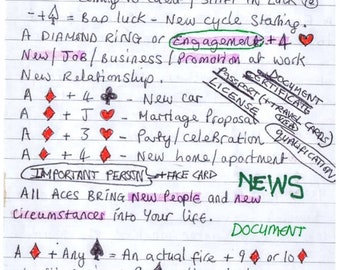 -+4♠ = Bad luck - New cycle starting.
A DIAMOND RING or Engagement +4 ♥
New/Job/Business/Promotion at work
New Relationship.
DOCUMENT
CERTIFICATE
PASSPORT (+travel cards)
LICENSE
QUALIFICATION
A ♦ + 4 ♣ - New car
A ♦ + J ♥ - Marriage Proposal
A ♦ + 3 ♥ - Party/celebration
A ♦ + 4 ♦ - New home/apartment
IMPORTANT PERSON + FACE CARD
NEWS
All Aces BRING New People and new
circumstances into Your life.
DOCUMENT
A ♦ + Any ♠ = An actual fire + 9 ♦ or 10 ♦